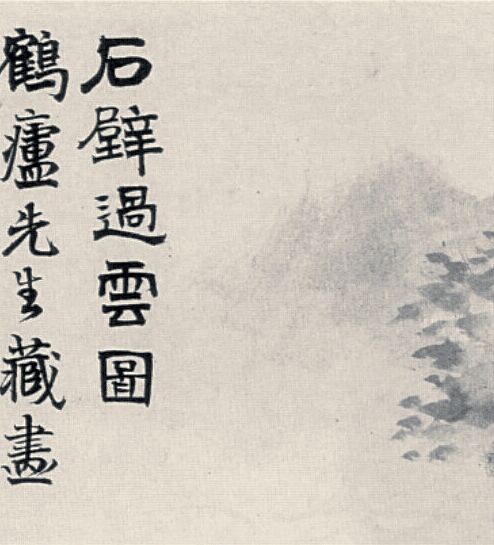 石壁過雲圖
鶴廬先生藏畫